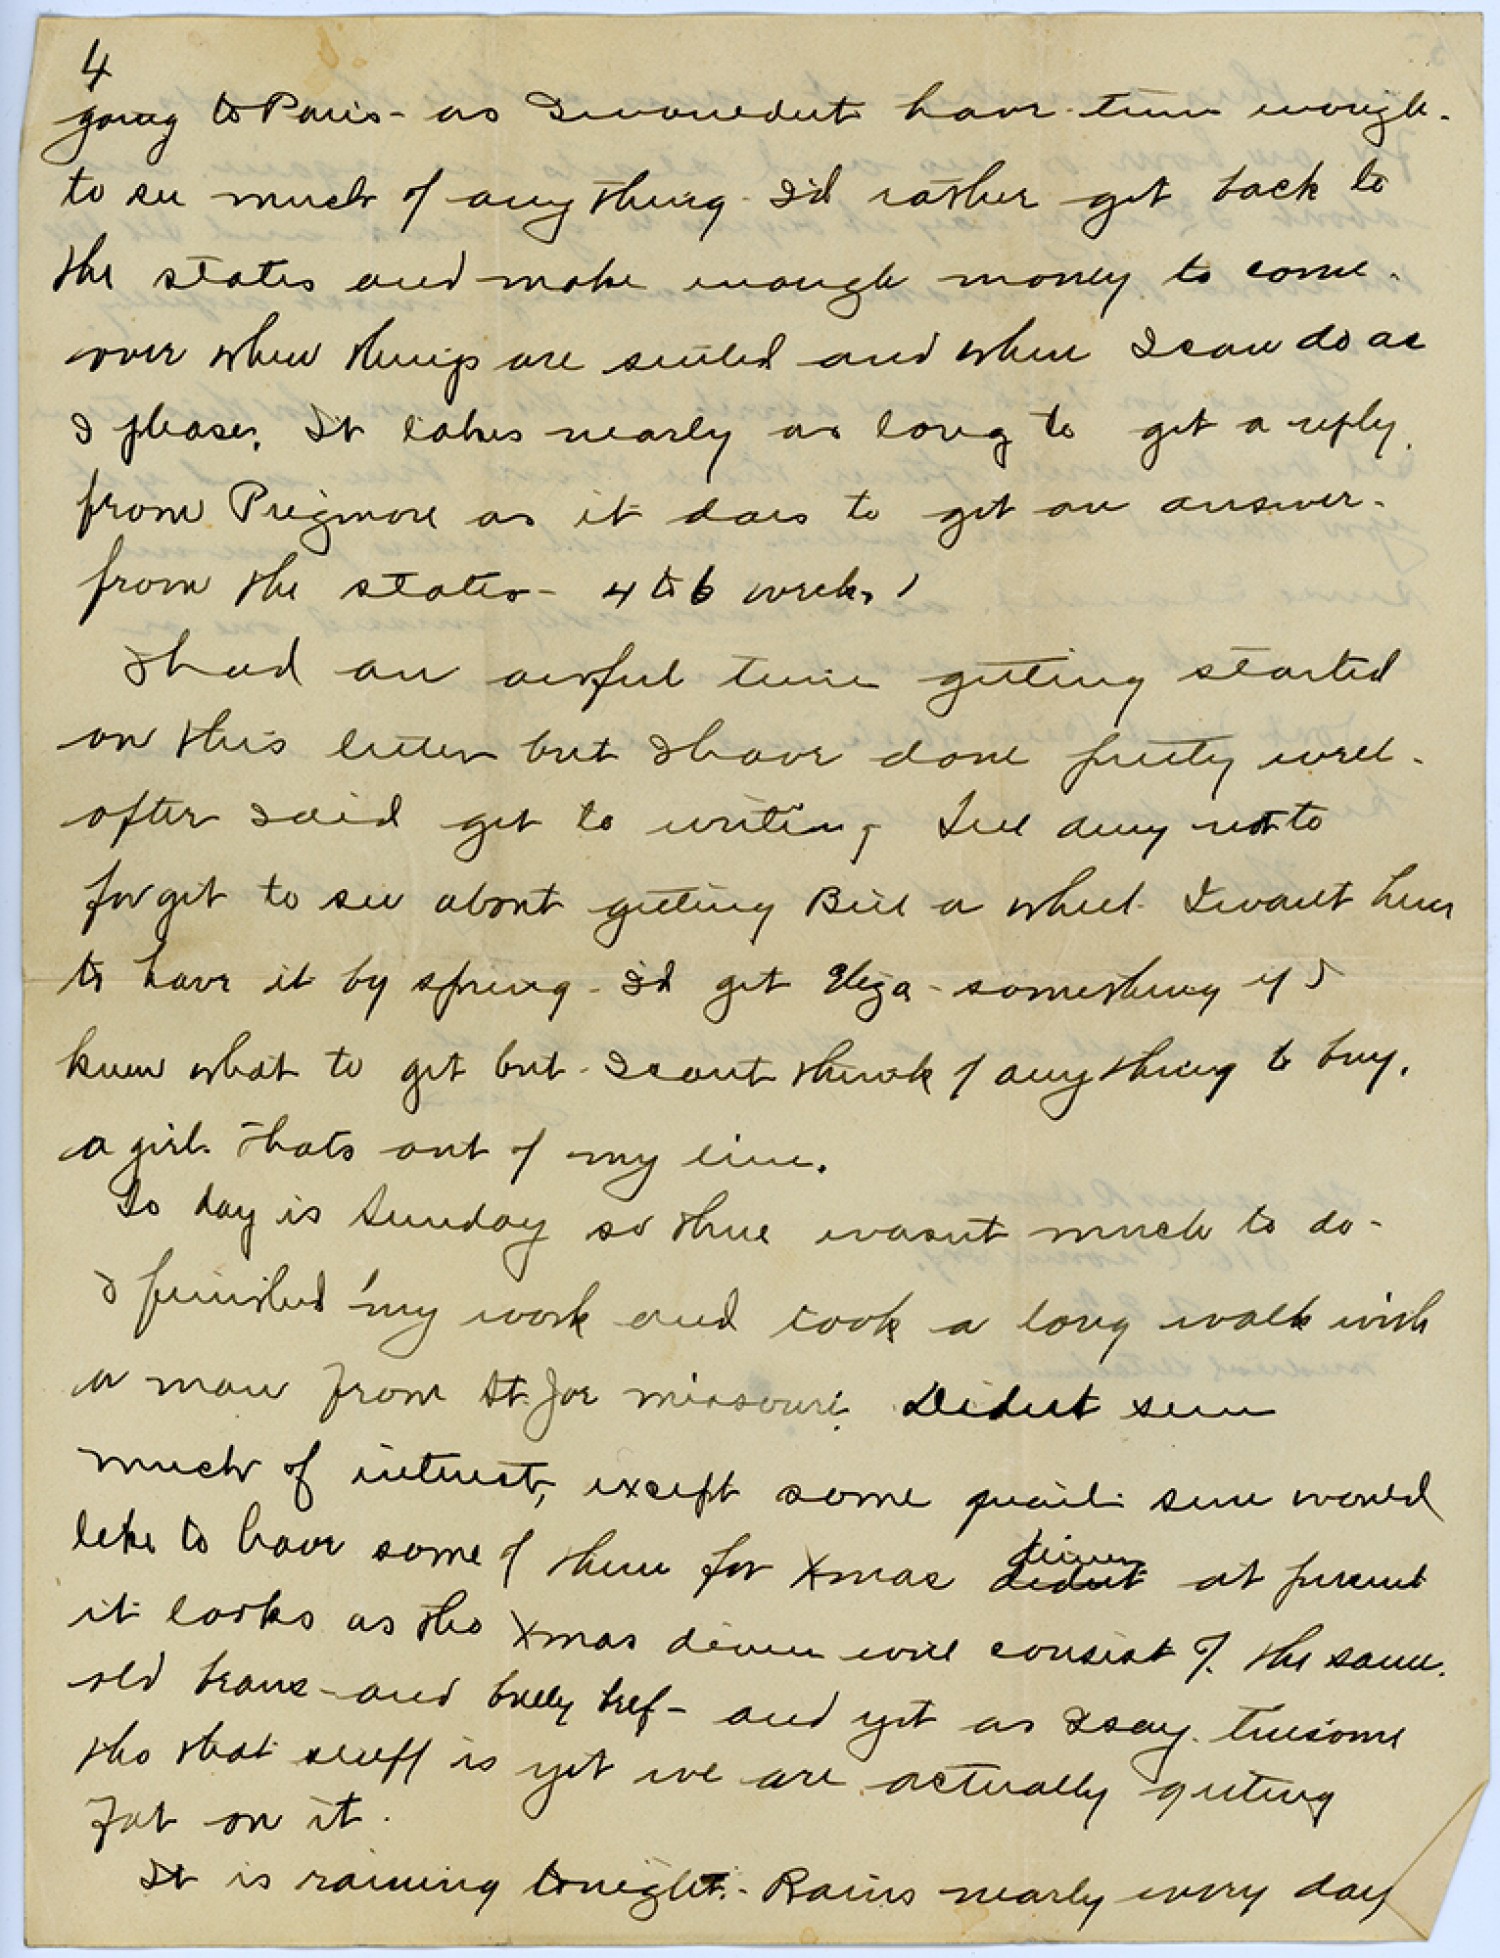 4
going to Paris - as I wouldnt have time enough -
to see much of any thing - I'd rather get back to
the states and make enough money to come -
over when things are settled and when I can do as
I please. It takes nearly as long to get a reply
from Prigmore as it does to get an answer -
from the states - 4 to 6 weeks,
I had an awful time getting started
on this letter but I have done pretty well -
after I did get to writing, Tell not to
forget to see about getting Bill a wheel - I want him
to have it by spring - I'd get Eliza - something if I
knew what to get but - I cant think of any thing to buy.
a girl. Thats out of my line.
To day is Sunday so there wasnt much to do -
I finished my work and took a long walk with
a man from St. Joe Missouri. Didnt see
much of interest, except some quail - sure would
like to have some of them for Xmas dinner at present
it looks as tho Xmas dinner will consist of the same.
old beans - and bully beef - and yet as I say - tiresome
tho that stuff is yet we are actually getting
fat on it.
It is raining tonight. - Rains nearly every day